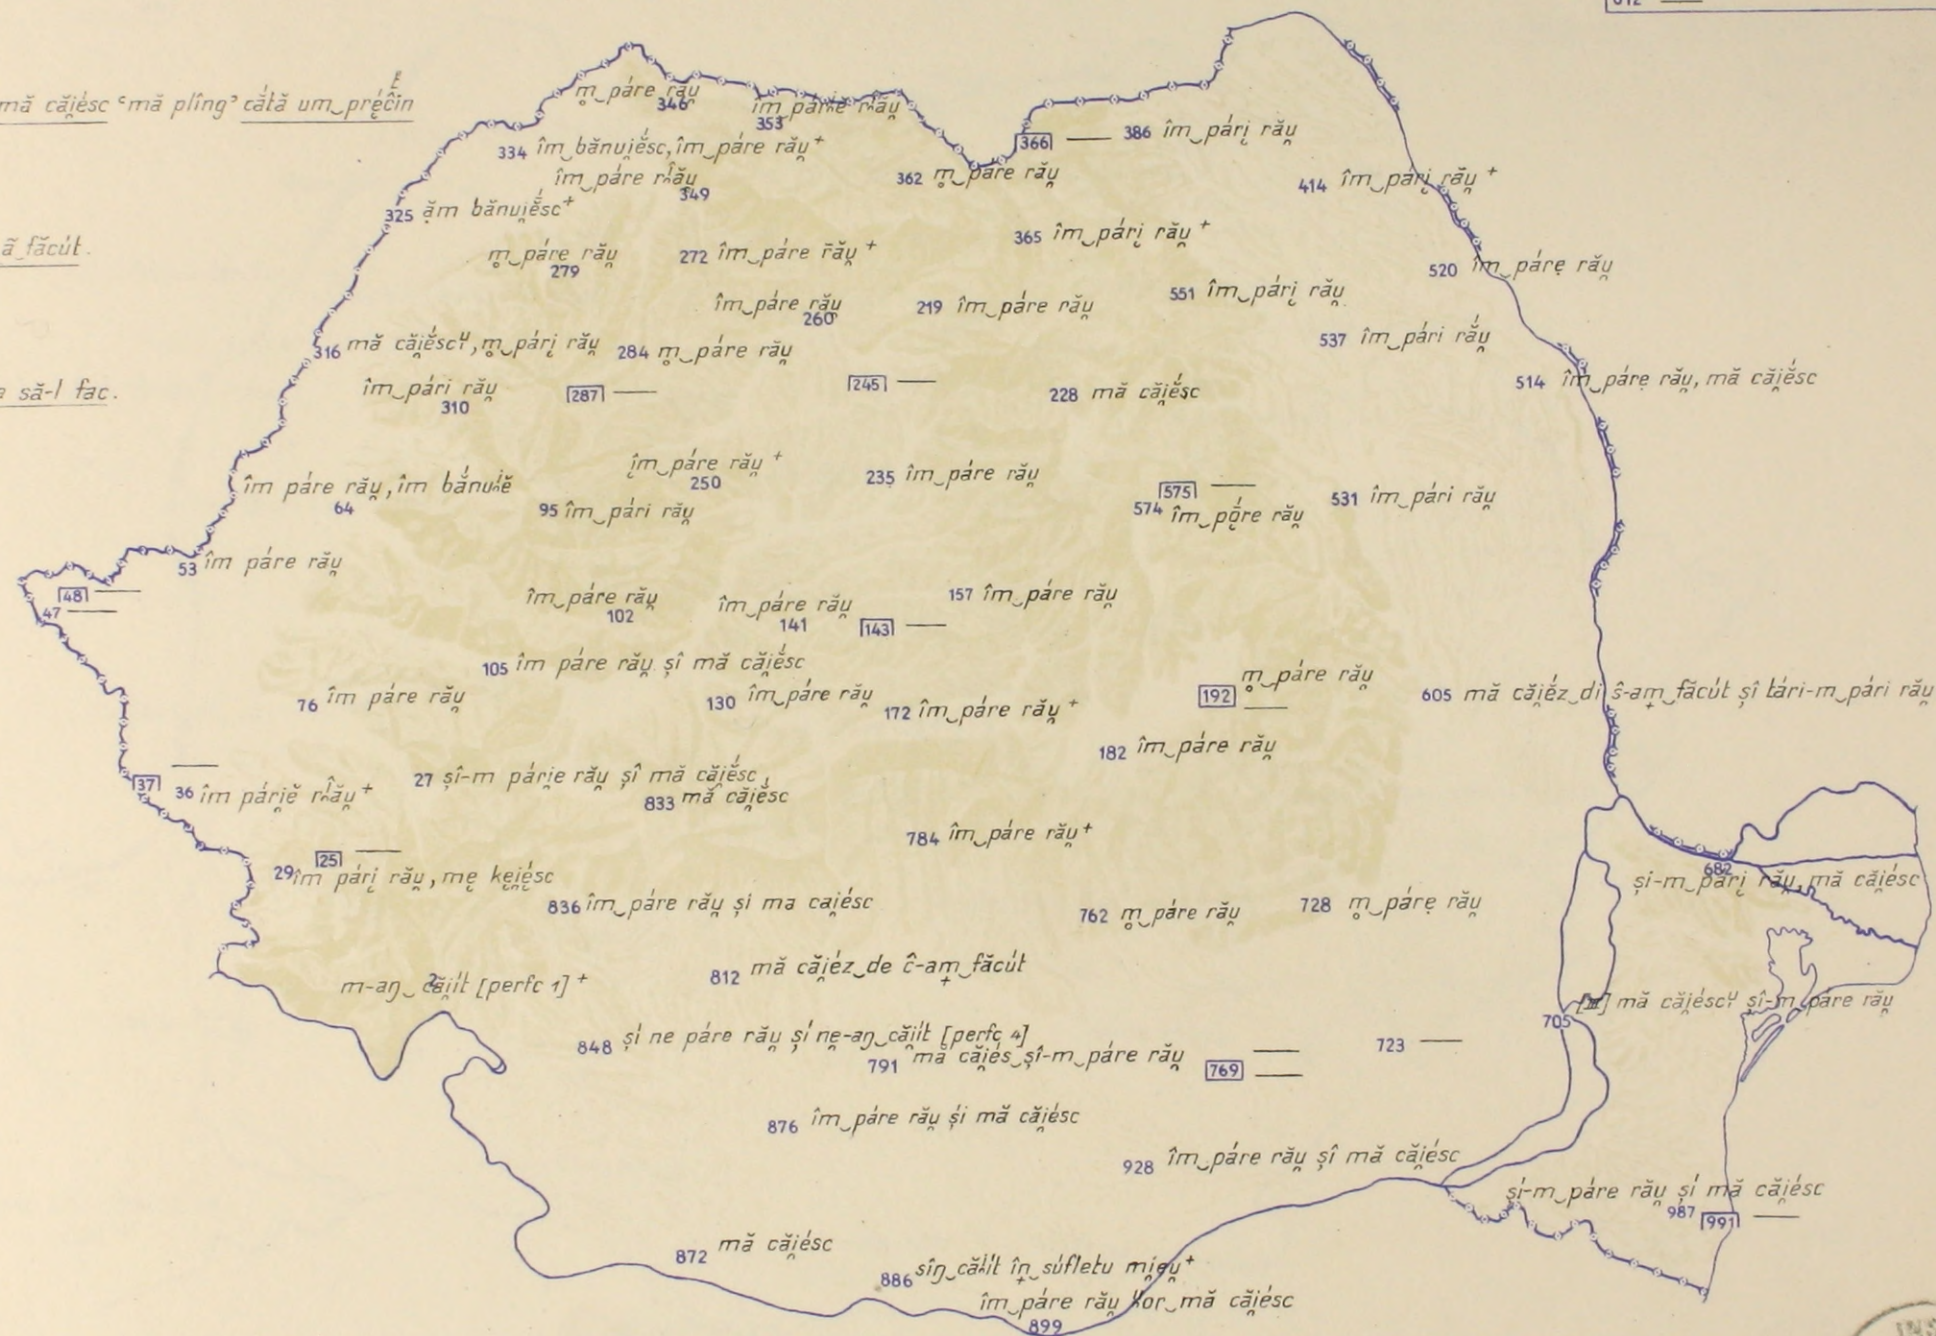 mă căi̯ésc ‘mă plîng’ cắtă um‿pręčin
ã‿făcút.
să-l fac.
m̥‿páre rău̯
346
îm‿párĭe rău̯
353
334 îm‿bănui̯ésc, îm‿páre rău̯ +
îm‿páre rău̯
349
362 m̥‿páre rău̯
366 —
386 îm‿pári̯ rău̯
414 îm‿pári̯ rău̯ +
325 ăm bănui̯ésc +
m̥‿páre rău̯
279
272 îm‿páre r̄ău̯ +
365 îm‿pári̯ rău̯ +
520 îm‿párẹ rău̯
îm‿páre rău̯
260
219 îm‿páre rău̯
551 îm‿pári̯ rău̯
537 îm‿pári rắu̯
316 mă căi̯éscᶸ, m̥‿pári̯ rău̯
284 m̥‿páre rău̯
îm‿pári rău̯
310
287 —
245 —
228 mă căi̯ésc
514 îm‿párẹ rău̯, mă căi̯ésc
îm páre rău̯, îm bắnui̯ĕ
64
îm‿páre rău̯ +
250
95 îm‿pári rău̯
235 îm‿páre rău̯
575 —
574 îm‿pǫ́re rău̯
531 îm‿pári rău̯
53 îm páre rău̯
48 —
47 —
îm‿páre rău̯
102
îm‿páre rău̯
141
143 —
157 îm‿páre rău̯
105 îm páre rău̯ șî mă căi̯ésc
76 îm páre rău̯
130 îm‿páre rău̯
172 îm‿páre rău̯ +
m̥‿páre rău̯
192 —
605 mă căi̯éz‿di ŝ-am‿făcút șî tári-m‿pári rău̯
182 îm‿páre rău̯
37 —
36 îm párĭĕ rău̯ +
27 șî-m párĭe rău̯ șî mă căi̯ésc
833 mă căi̯ésc
784 îm‿páre rău̯ +
25 —
29 îm pári̯ rău̯, mę kęi̯ésc
682
și-m‿pári̯ rău̯, mă căi̯ésc
836 îm‿páre rău̯ și ma cai̯ésc
762 m̥‿páre rău̯
728 m̥‿párẹ rău̯
812 mă căi̯éz‿de ĉ-am‿făcút
2
m-aŋ‿căi̯ít [perfc 1] +
705 mă căi̯éscᶸ șî-m‿páre rău̯
848 și ne páre rău̯ și ne-aŋ‿căi̯ít [perfc 4]
791 mă căi̯és‿șî-m‿páre rău̯
769 —
723 —
876 îm‿páre rău̯ și mă căi̯ésc
928 îm‿páre rău̯ șî mă căi̯ésc
și-m‿páre rău̯ și mă căi̯ésc
987
991 —
872 mă căi̯ésc
886 sîŋ‿căi̯ít în‿súfletu mieu̯ +
îm‿páre rău̯ or‿mă căi̯ésc
899